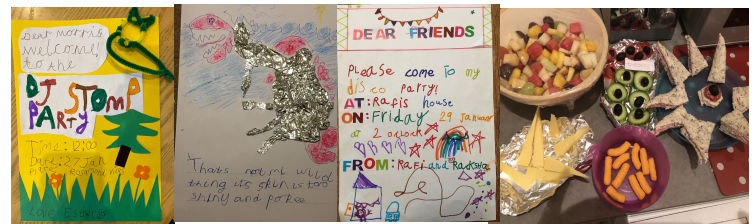 Dear morris
welcome!
to the
DJ STOMP
PARTY
Time: 12:00
Date: 27 Jan
Love
Thats not my wild
thing its skin is too
shiny and
DEAR FRIENDS
Please come to my
disco party!
AT: Rafis house
ON: Friday 29 January
at 2 oclock
FROM: Rafi and